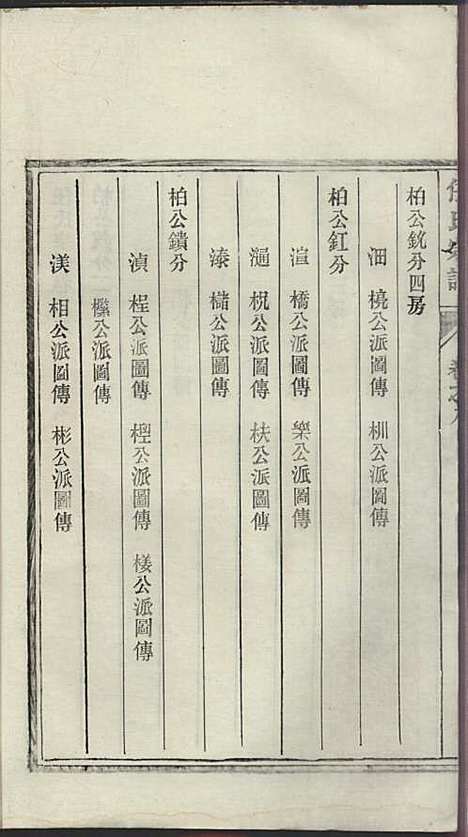 柏公銃分四房
沺 橈公派圖傳 栦公派圖傳
柏公釭分
渲 橋公派圖傳 樂公派圖傳
漍 柷公派圖傳 枎公派圖傳
漆 櫧公派圖傳
柏公鐨分
滇 桯公派圖傳 樫公派圖傳 棲公派圖傳
公派圖傳
渼 相公派圖傳 彬公派圖傳